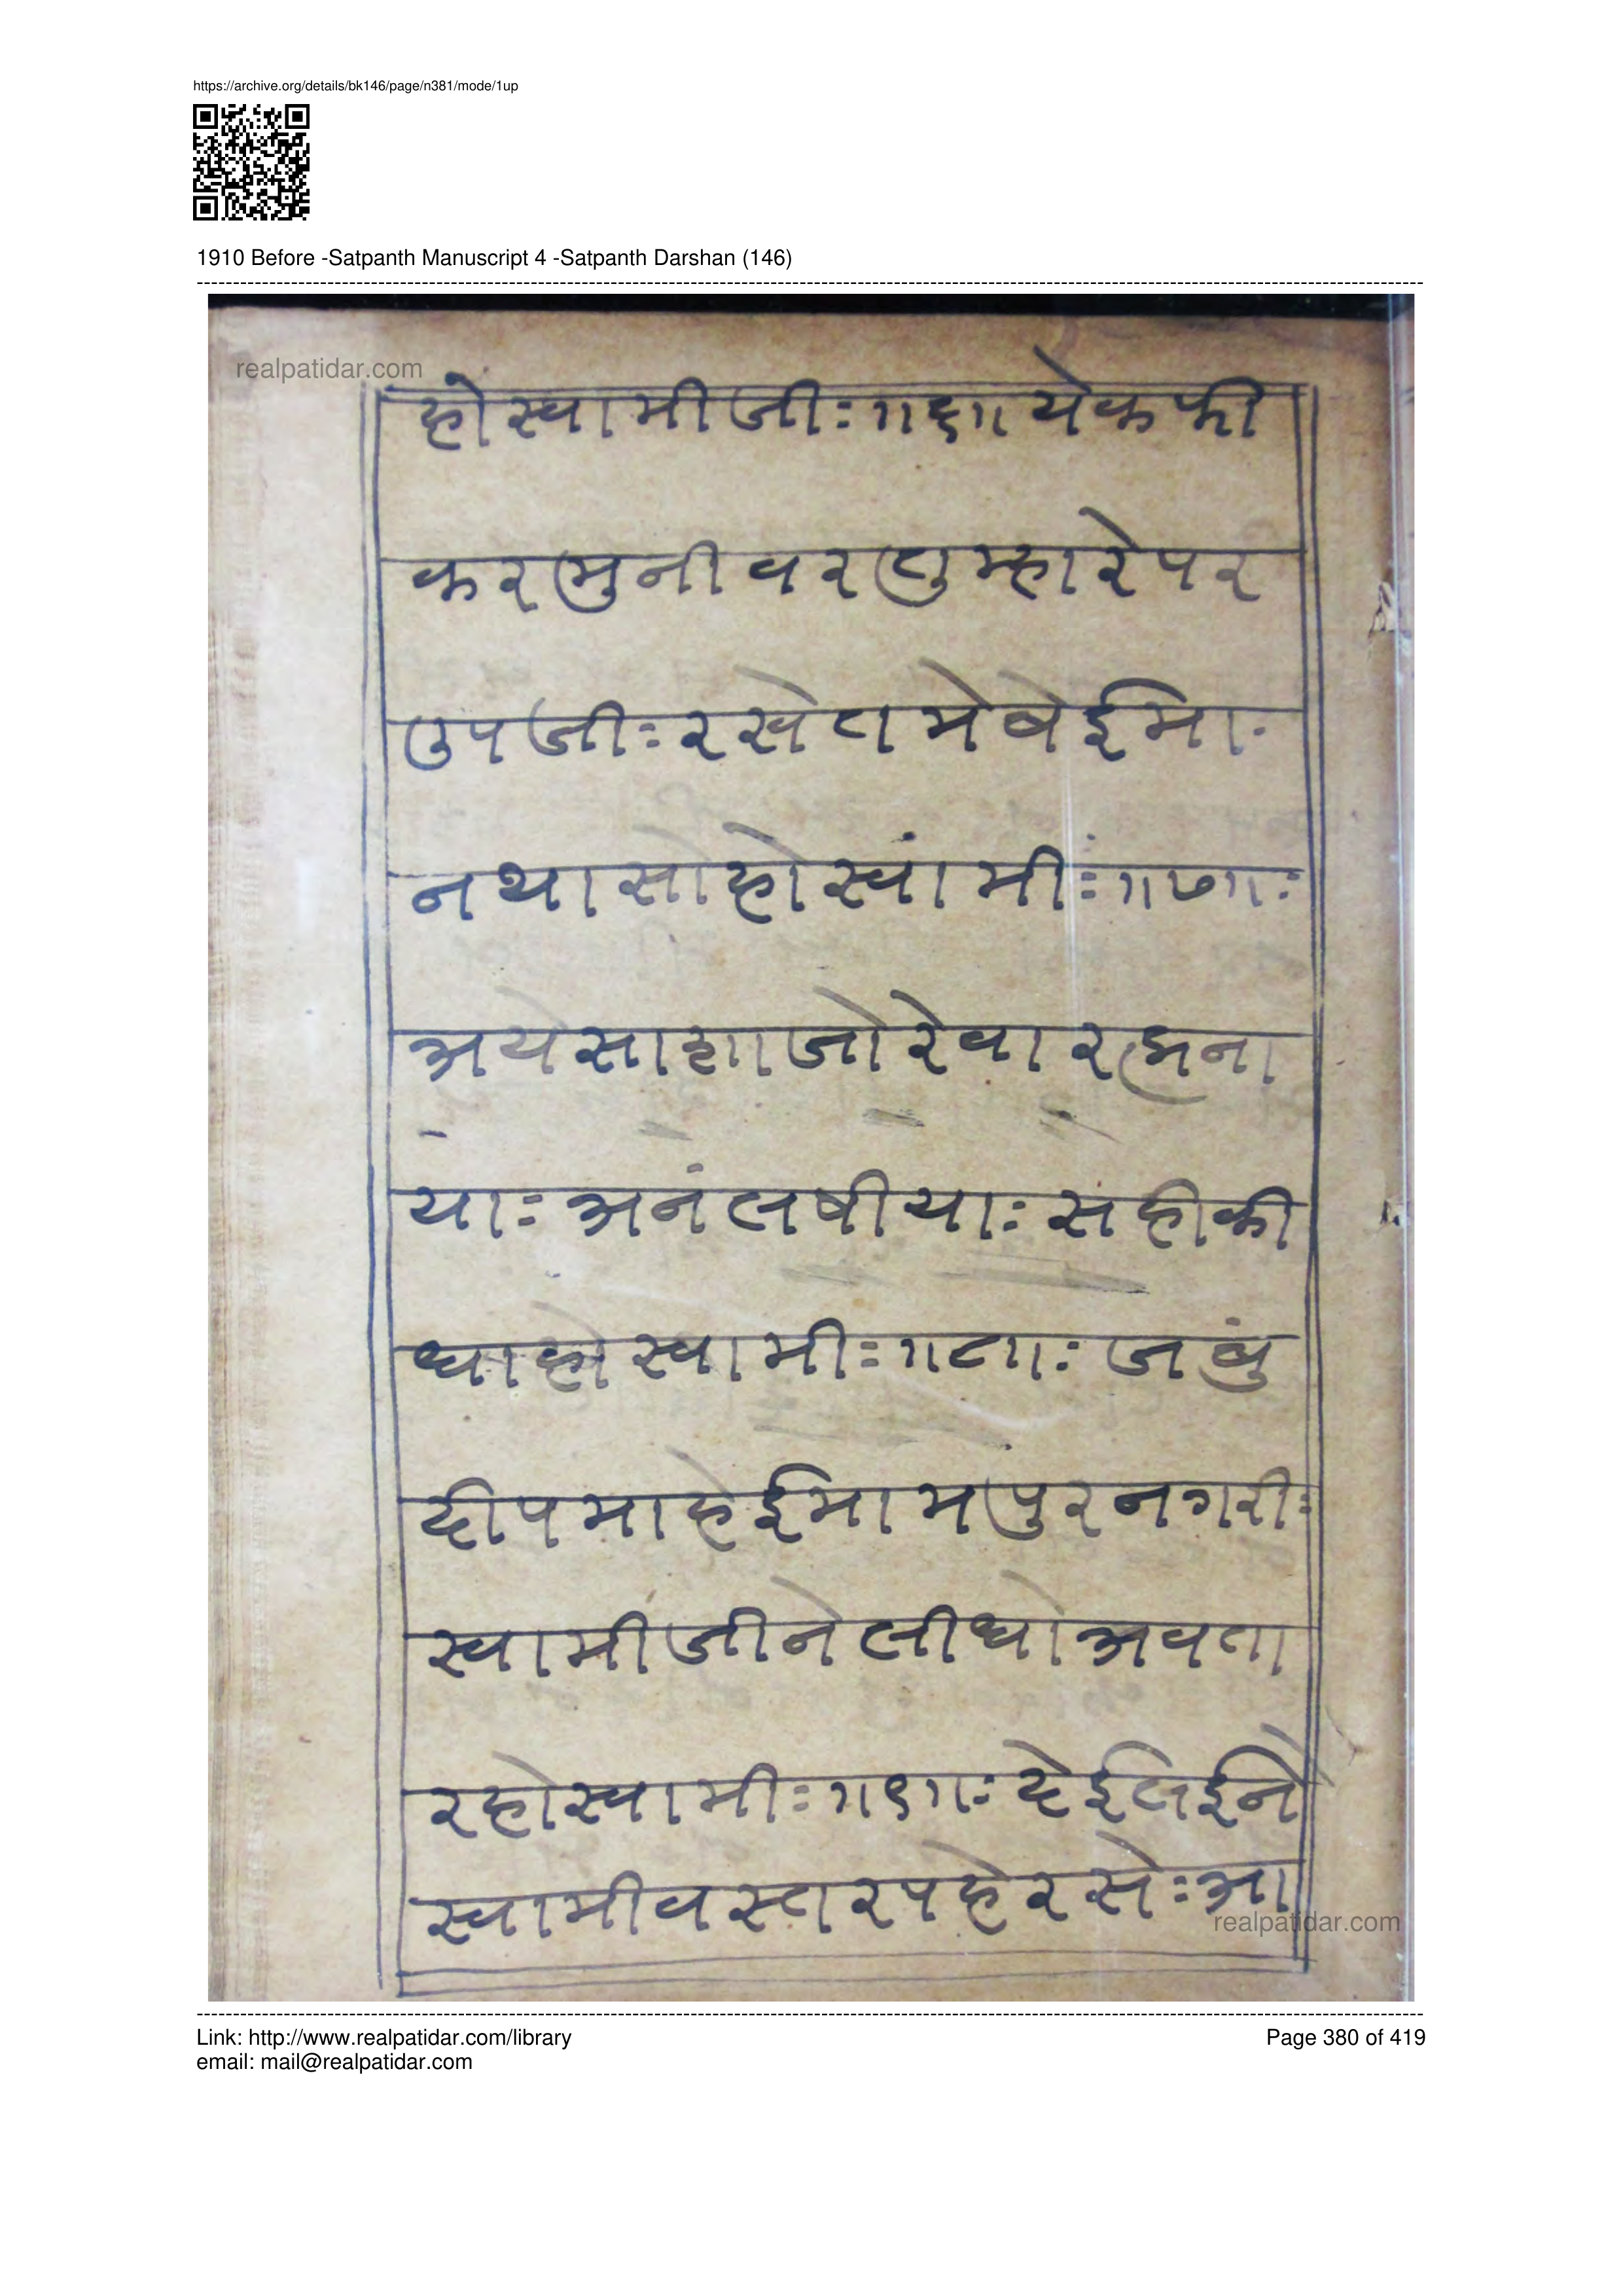 https://archive.org/details/bk146/page/n381/mode/1up
1910 Before -Satpanth Manuscript 4 -Satpanth Darshan (146)
realpatidar.com
होस्वामीजीः॥६॥येकफी
करमुनीवरतुम्हारेपर
उपजीःरखेतमेबेईमा
नथासोहोस्वांमीः॥७॥ः
अयेसाशाजोरेवारह्मना
याःअनंतषीयाःसहीकी
धाहोस्वामीः॥८॥ःजबुं
दीपमाहेईमामपुरनगरीः
स्वामीजीनेलीधोअवता
रहोस्वामीः॥९॥ःदेईलईने
स्वामीवस्तरपहेरसेःआ
realpatidar.com
Link: http://www.realpatidar.com/library
Page 380 of 419
email: mail@realpatidar.com